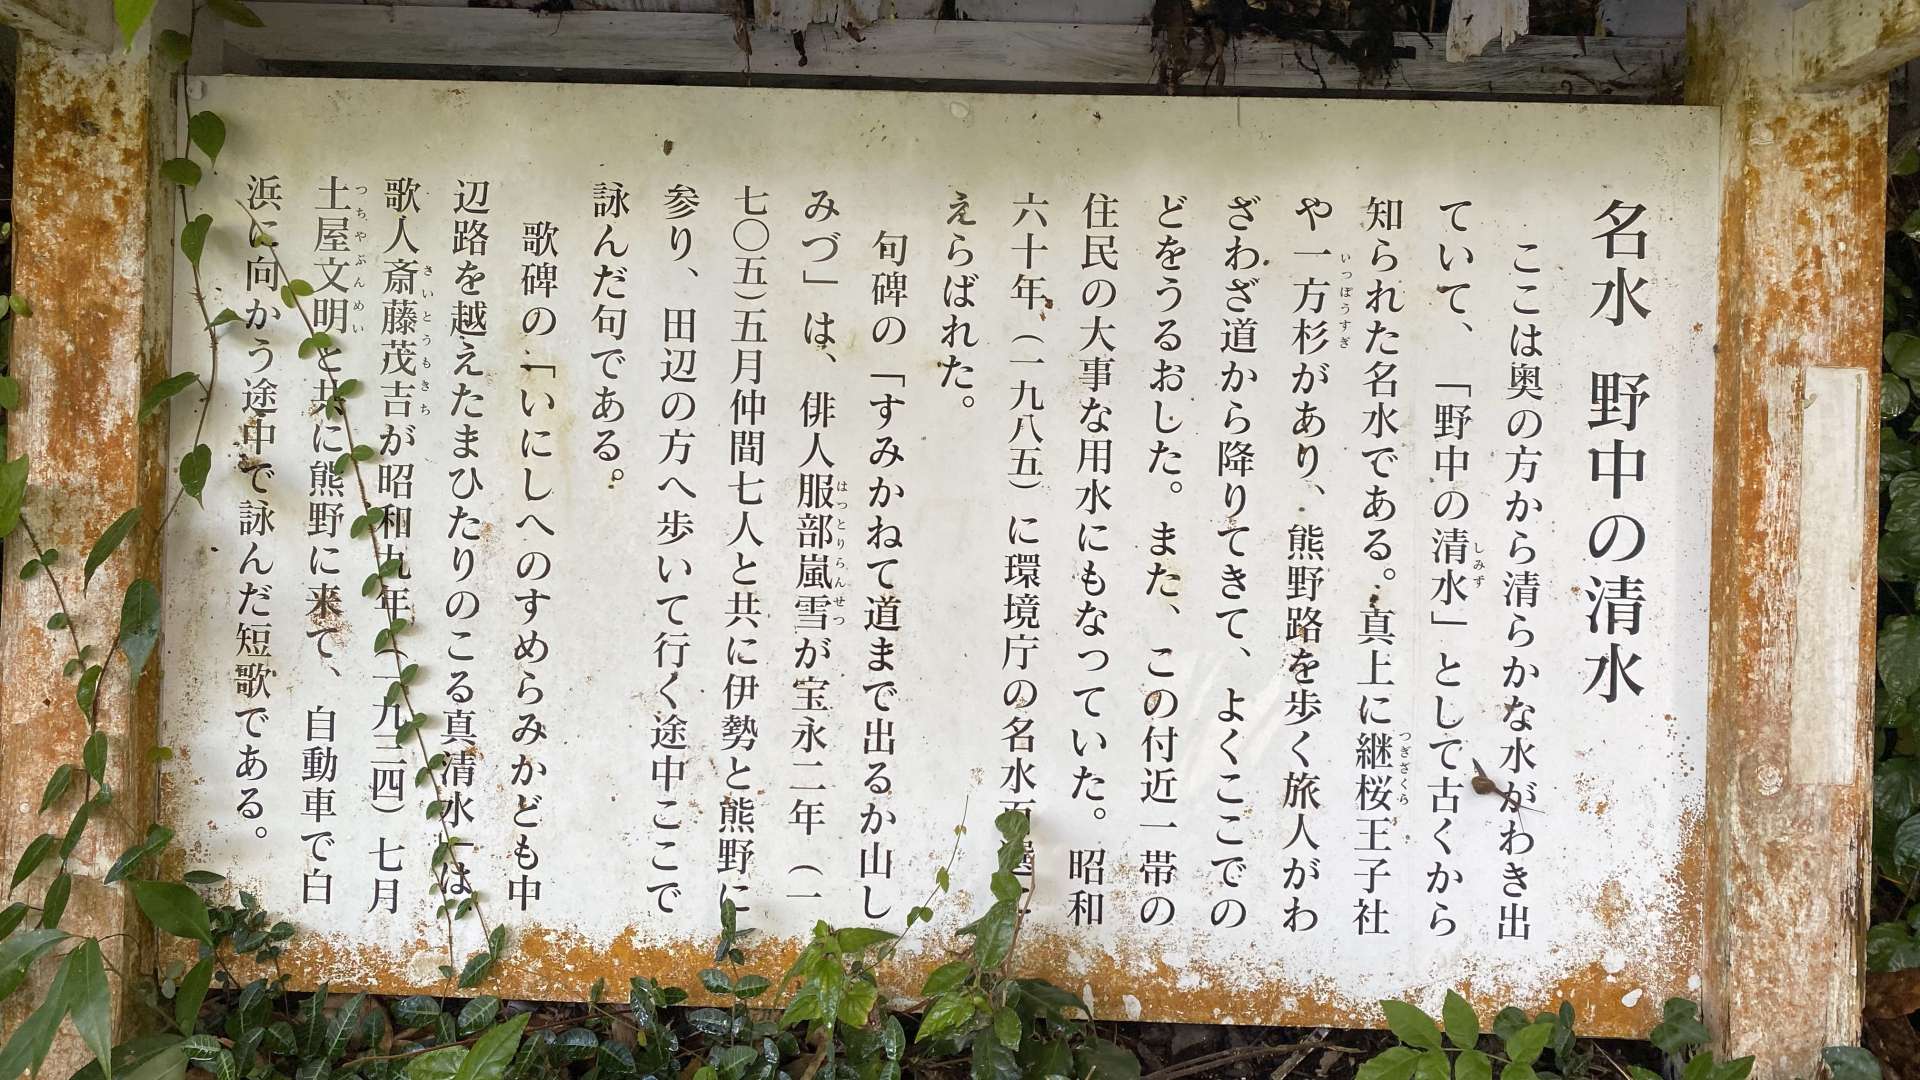 名水 野中の清水
ここは奥の方から清らかな水がわき出
ていて、「野中の清水」として古くから
しみず
知られた名水である。真上に継桜王子社
つぎざくら
や一方杉があり、熊野路を歩く旅人がわ
いっぽうすぎ
ざわざ道から降りてきて、よくここでの
どをうるおした。また、この付近一帯の
住民の大事な用水にもなっていた。昭和
六十年(一九八五)に環境庁の名水百選に
えらばれた。
句碑の「すみかねて道まで出るか山し
みづ」は、俳人服部嵐雪が宝永二年(一
はっとりらんせつ
七〇五)五月仲間七人と共に伊勢と熊野に
参り、田辺の方へ歩いて行く途中ここで
詠んだ句である。
歌碑の「いにしへのすめらみかども中
辺路を越えたまひたりのこる真清水」は
歌人斎藤茂吉が昭和九年(一九三四)七月
さいとうもきち
土屋文明と共に熊野に来て、自動車で白
つちやぶんめい
浜に向かう途中で詠んだ短歌である。